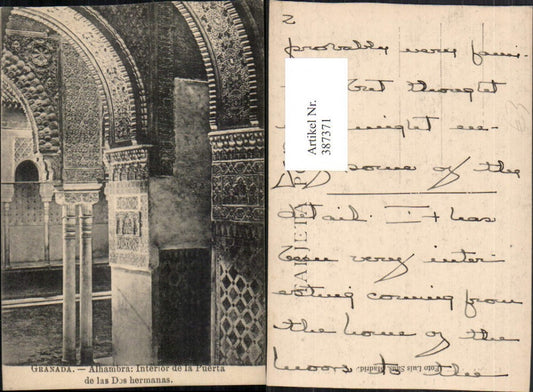 GRANADA. — Alhambra: Interior de la Puerta
de las Dos hermanas.
2
probally very fami-
but thought
might en-
some of the
detail. It has
been very inter
esting coming from
the home of the
moors to the
Artikel Nr.
387371
TARJETA PO
Foto Luis Madrid.